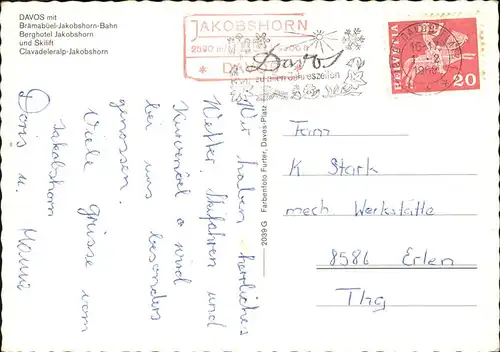 DAVOS mit
Brämabüel-Jakobshorn-Bahn
Berghotel Jakobshorn
und Skilift
Clavadeleralp-Jakobshorn
JAKOBSHORN
2590 m
DAVOS
Davos
zu allen Jahreszeiten
HELVETIA
20
Wir haben herrliches
Wetter. Skifahren und
Kurvenöl o wird
bei uns besonders
genossen.
Viele Grüsse vom
Jakobshorn
Doris u.
2039 G Farbenfoto Furter, Davos-Platz
Fam
K Stark
mech Werkstätte
8586 Erlen
Thg